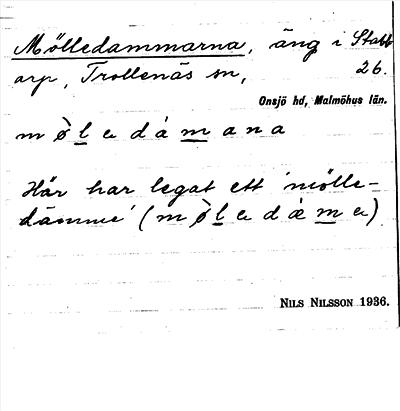 Mölledammarna, äng i Stabb
arp, Trollenäs sn, 26.
Onsjö hd, Malmöhus län.
m ø̀ l e d á m a n a
Här har legat ett 'mölle-
dämme' (m ø̀ l e d æ̀ m e)
NILS NILSSON 1936.